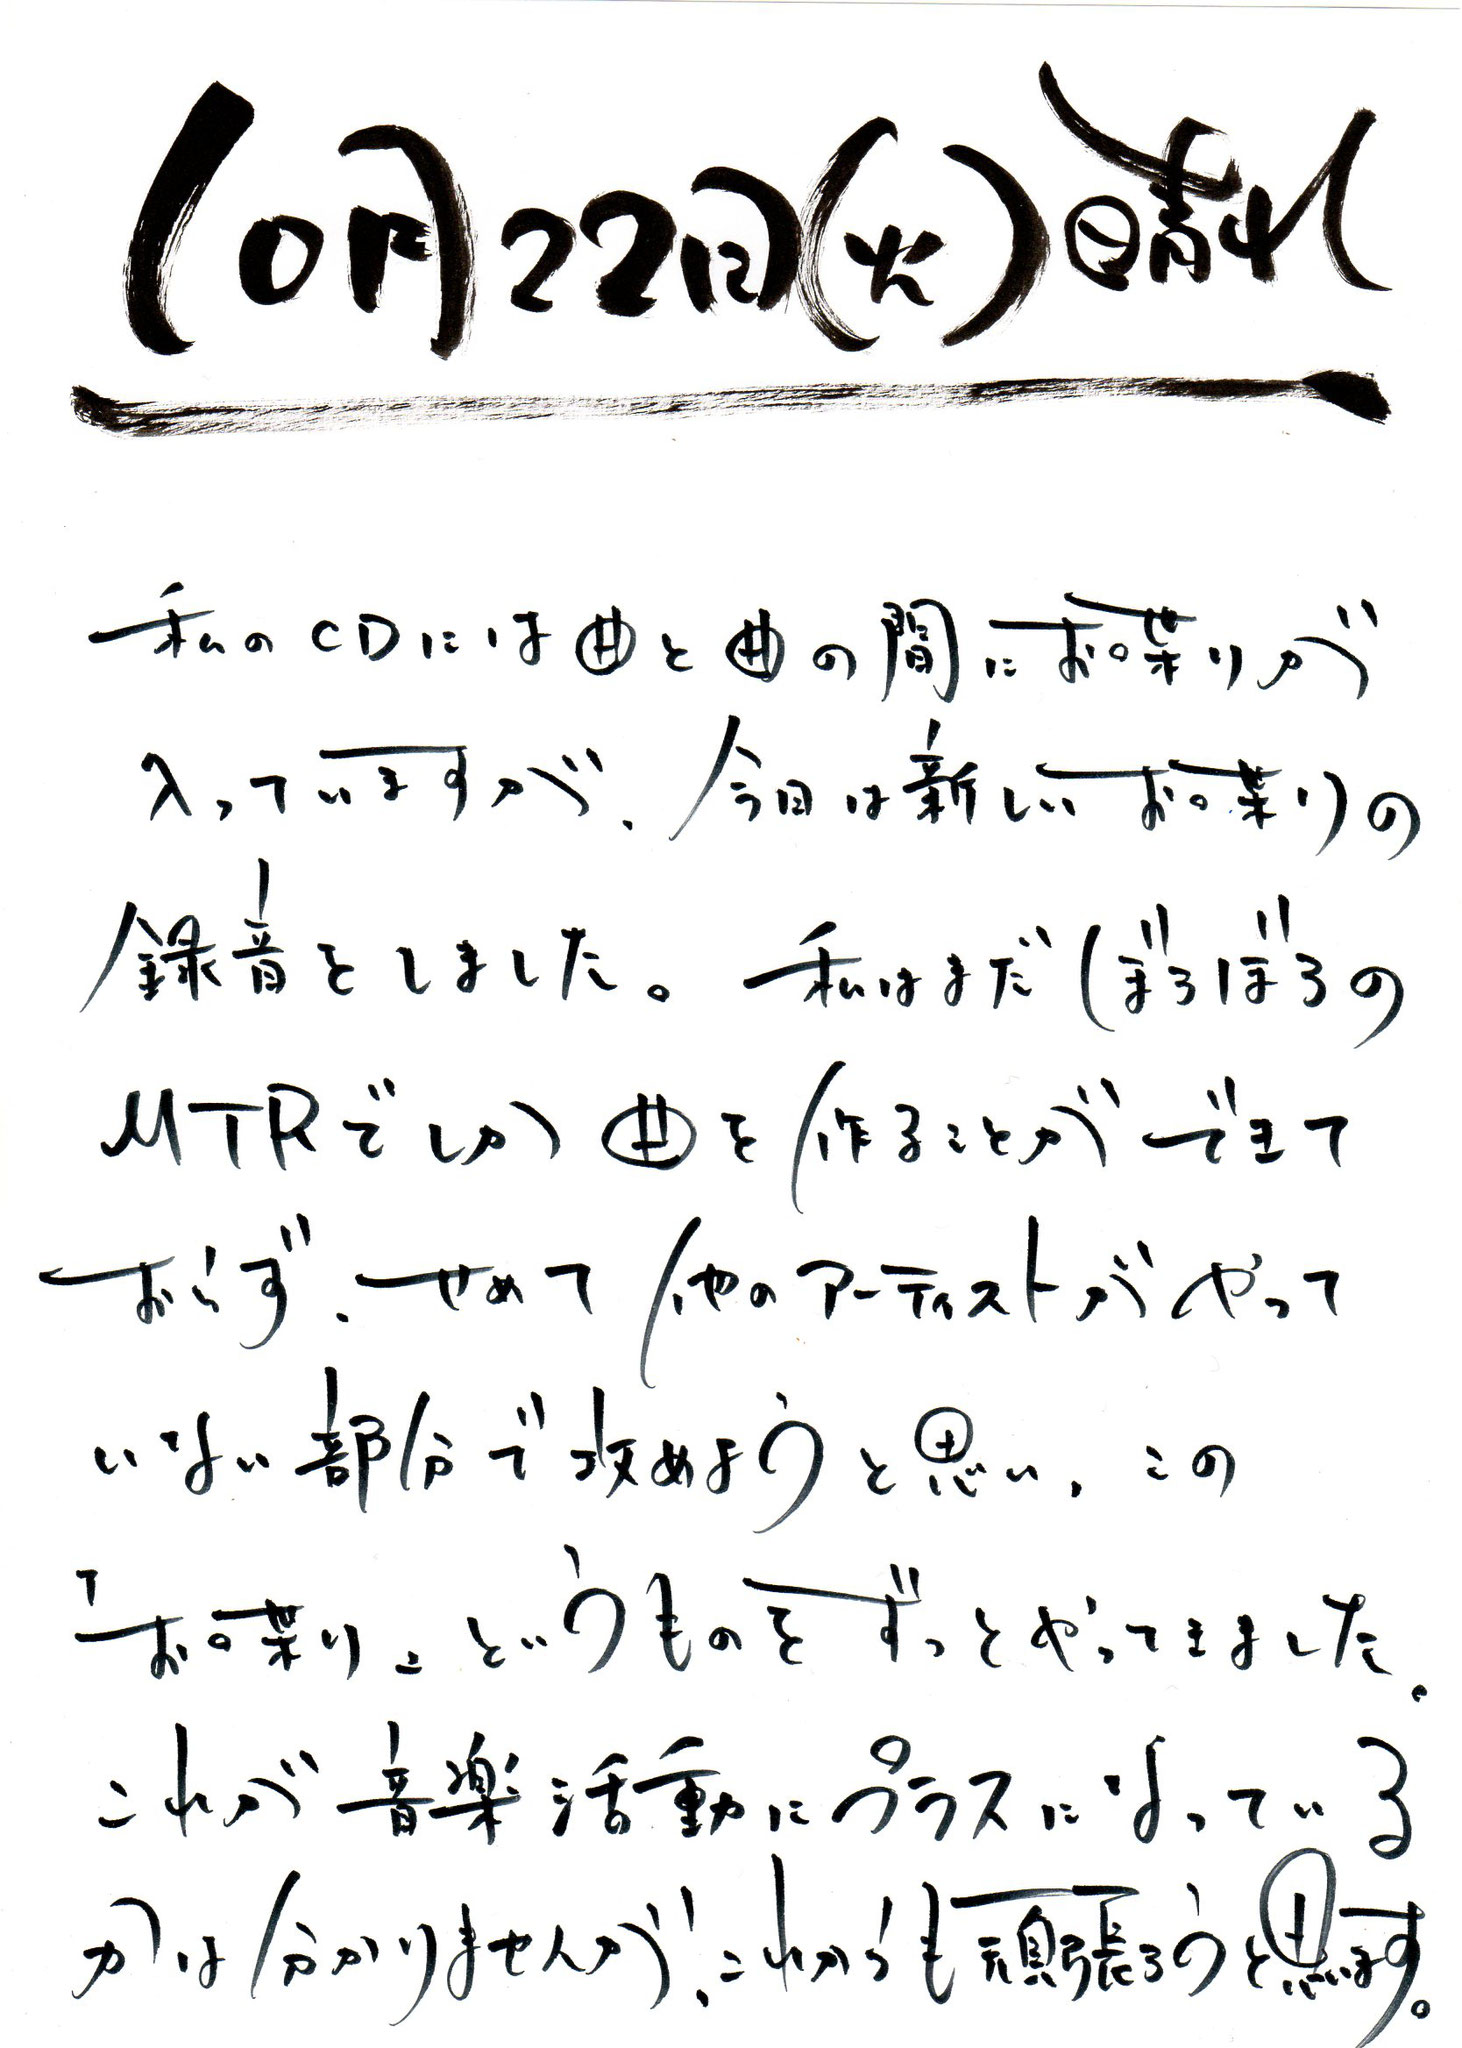 10月22日(火)晴れ
私のCDには曲と曲の間にお喋りが
入っていますが、今日は新しいお喋りの
録音をしました。私はまだぼろぼろの
MTRでしか曲を作ることができて
おらず、せめて他のアーティストがやって
いない部分で攻めようと思い、この
「お喋り」というものをずっとやってきました。
これが音楽活動にプラスになっている
かは分かりませんが、これからも頑張ろうと思います。